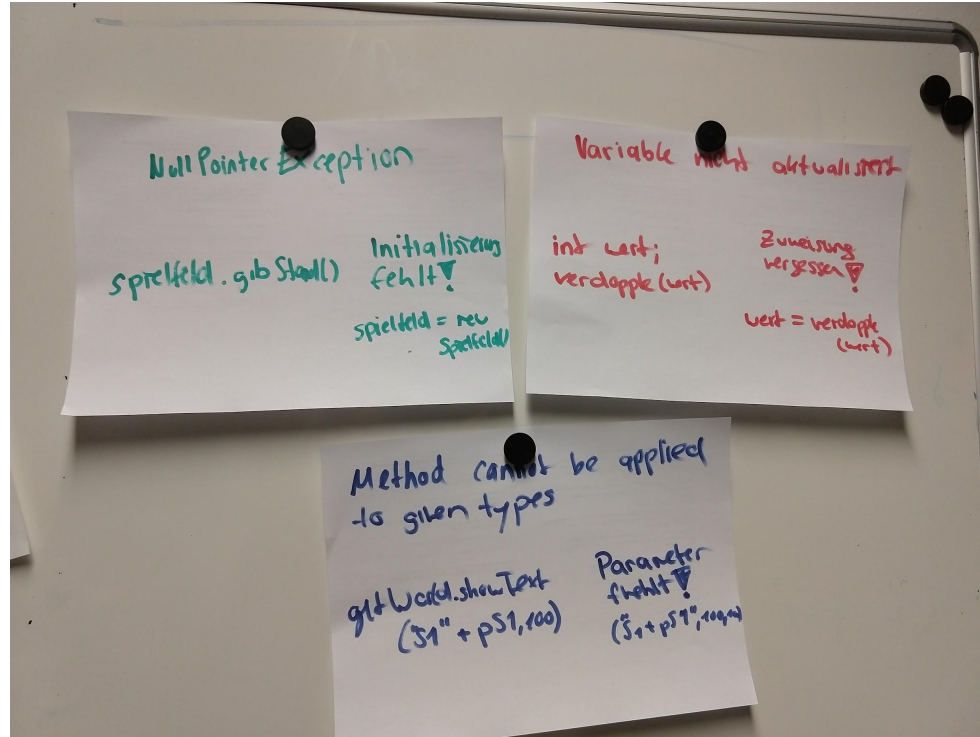 NullPointerException
spielfeld.gibStand()
Initialisierung
fehlt!
spielfeld = new
Spielfeld()
Variable nicht aktualisiert
int wert;
verdopple(wert)
Zuweisung
vergessen!
wert = verdopple
(wert)
Method cannot be applied
to given types
getWorld.showText
("S1" + pS1,100)
Parameter
fhehlt!
("S1+pS1",100,10)